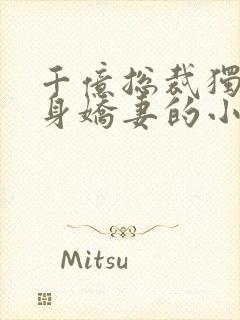 千億總裁獨
身嬌妻的小
Mitsu